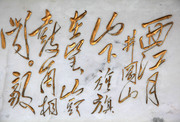 西江月
井岡山
山下旌旗
在望山头
鼓角相
闻。敵